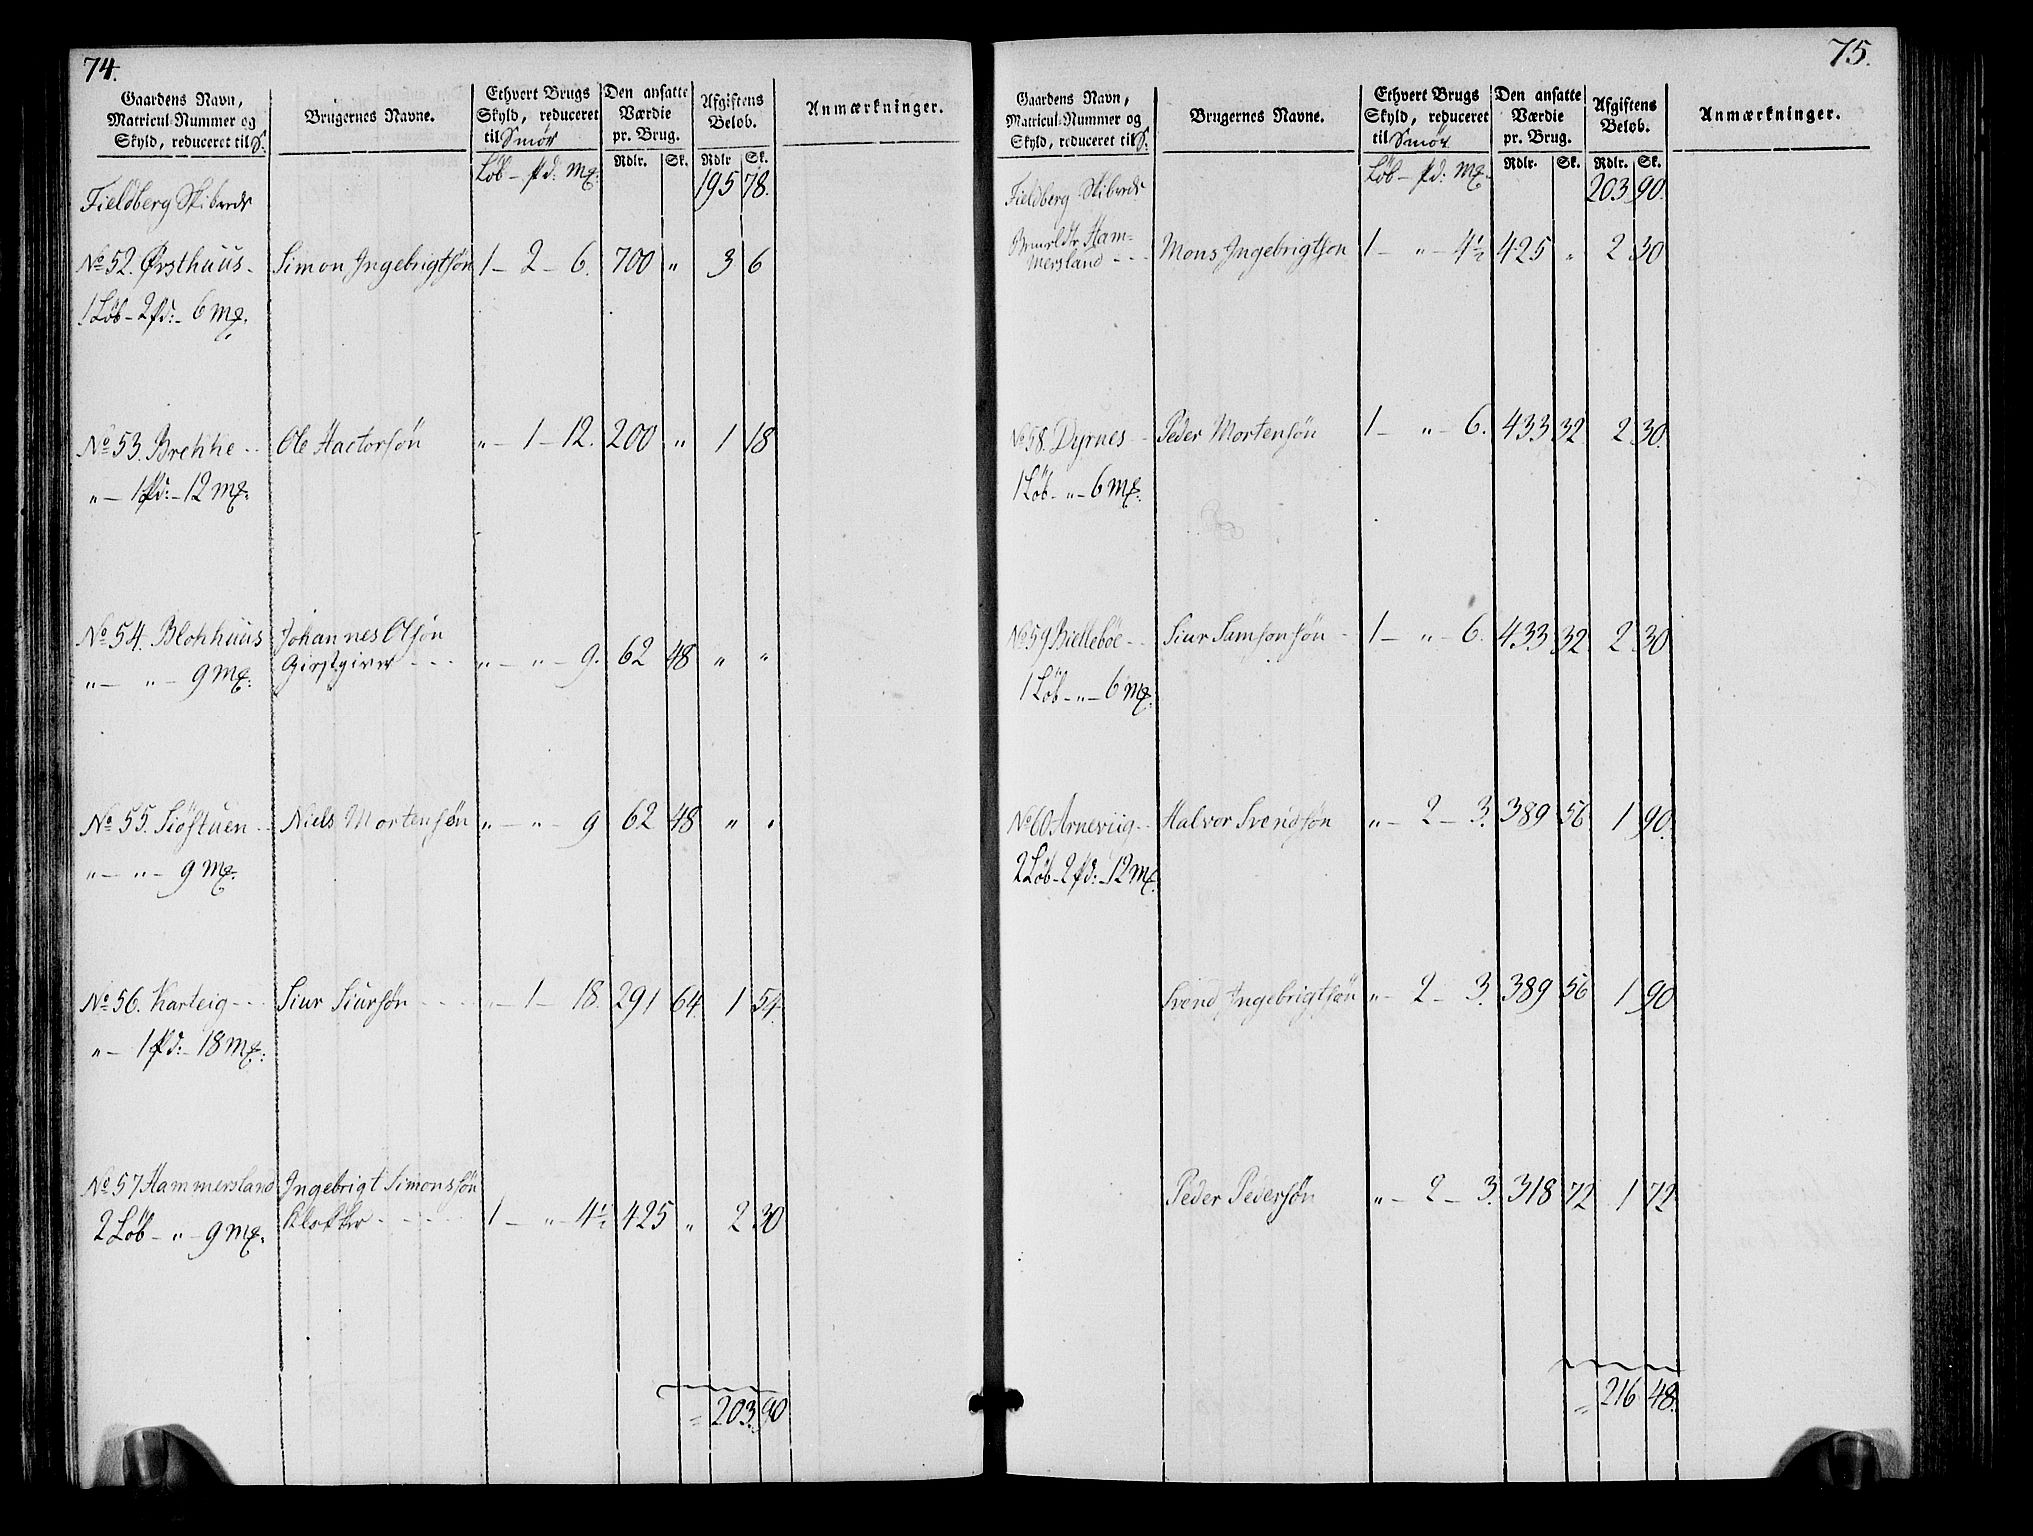 74.
Gaardens Navn, Matricul-Nummer og Skyld, reduceret til S. | Brugernes Navne. | Ethvert Brugs Skyld, reduceret til Smør | Den ansatte Værdie pr. Brug. | Afgiftens Beløb. | Anmærkninger.
Løb – pd: Mk: | Rdlr. | Sk. | Rdlr | Sk.
Fieldberg Skibrede 195 78.
No 52. Ørsthuus - Simon Ingebrigtsøn 1 – 2 – 6. 700 „ 3 6
1 Løb – 2 pd: – 6 Mk.
No 53. Brekke - - Ole Hactorsøn „ – 1 – 12. 200 „ 1 18
„ – 1 pd: – 12 Mk:
No 54. Blokhuus Johannes Olsøn
Giestgiver - - - „ – „ – 9. 62 48 „ „
„ – „ – 9 Mk:
No 55. Siøstuen - Niels Mortensøn „ – „ – 9 62 48 „ „
„ – „ – 9 Mk.
No 56. Karteig - - - Siur Siursøn - - - - „ – 1 – 18. 291 64. 1 54.
„ – 1 pd: – 18 Mk:
No 57 Hammersland Ingebrigt Simonssøn
Klokker - - - - - 1 – „ – 4½ 425 „ 2 30
2 Løb – „ – 9 Mk.
= 203. 90
75.
Gaardens Navn, Matricul-Nummer og Skyld, reduceret til S. | Brugernes Navne. | Ethvert Brugs Skyld, reduceret til Smør | Den ansatte Værdie pr. Brug. | Afgiftens Beløb. | Anmærkninger.
Løb – pd: Mk. | Rdlr. | Sk. | Rdlr. | Sk.
Fieldberg Skibrede 203. 90.
Ham=
mersland - - - Mons Ingebrigtson 1 – „ – 4½ 425 „ 2 30
No 58. Dyrnes - Peder Mortensøn 1 – „ – 6. 433 32 2 30.
1 Løb – „ – 6 Mk.
No 59 Bielleböe - - Siur Samsonsøn - 1 – „ – 6. 433 32 2 30
1 Løb – „ – 6 Mk.
No 60 Arneviig - - Halvor Svendsøn „ – 2 – 3. 389 56 1 90.
2 Løb – 2 pd: – 12 Mk.
Svend Ingebrigtsøn „ – 2 – 3. 389 56 1 90
Peder Pedersøn „ – 2 – 3. 318 72 1 72
= 216 48.